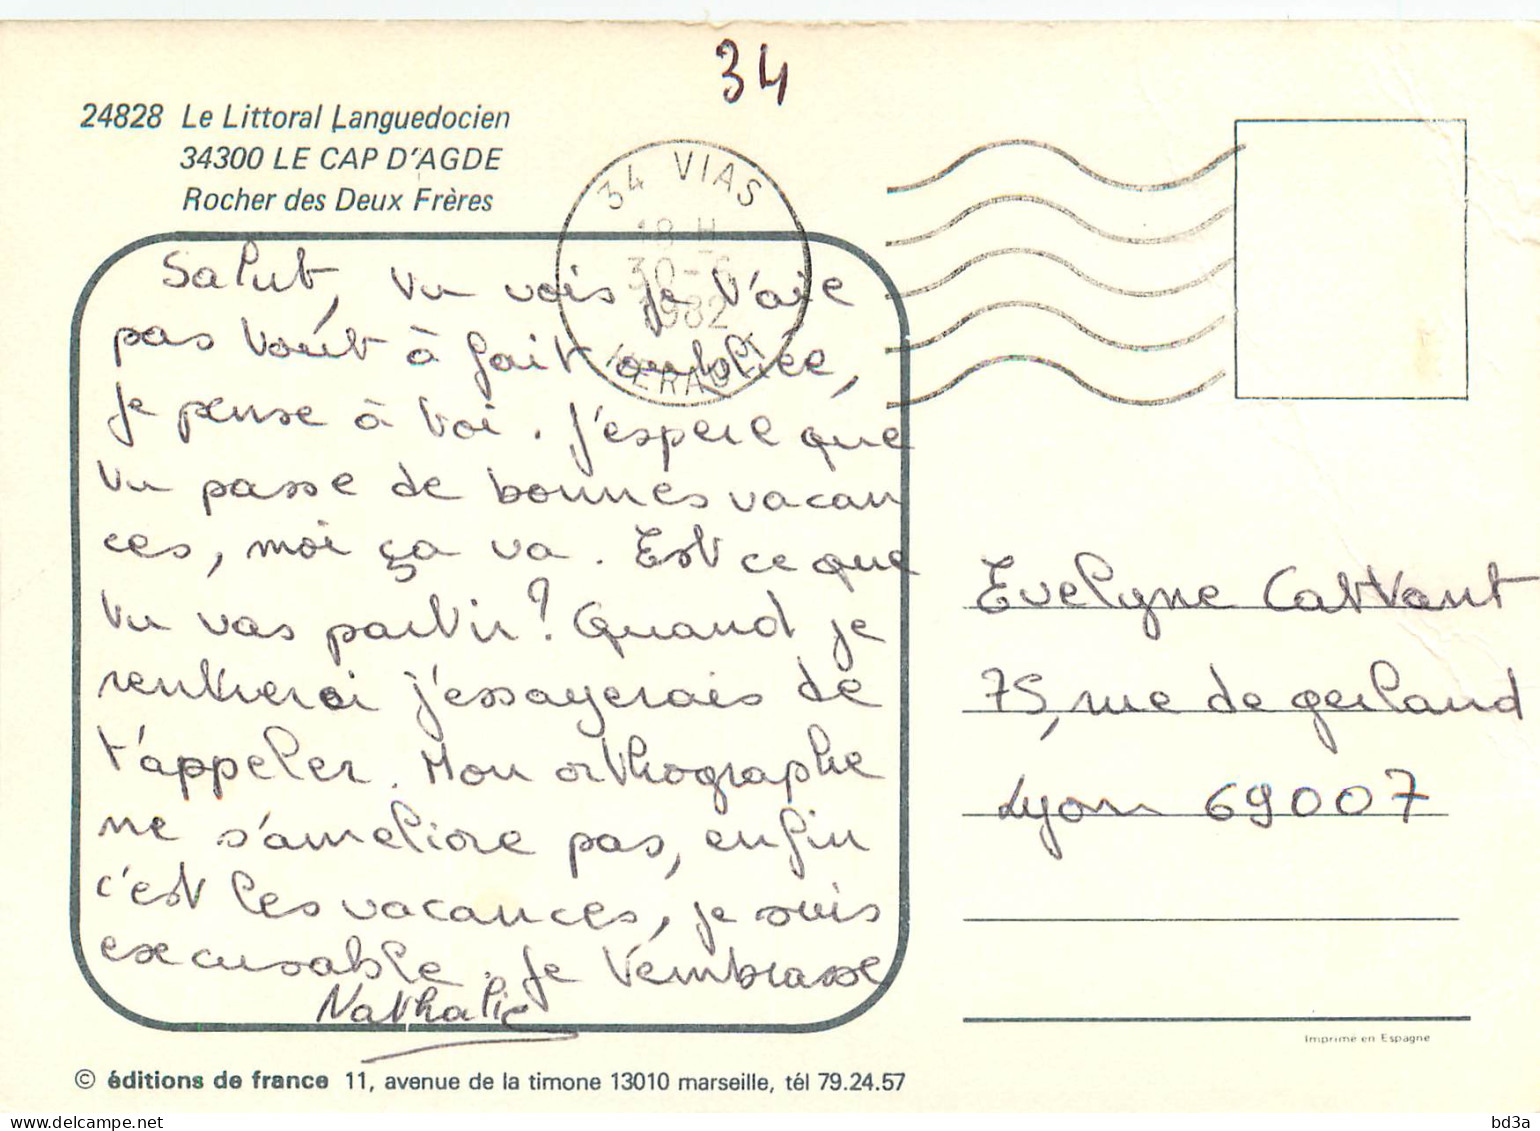 34
24828 Le Littoral Languedocien
34300 LE CAP D'AGDE
Rocher des Deux Frères
34 VIAS
18 H
30-6
1982
HERAULT
Salut, tu vois je t'aie
pas tout à fait oubliée,
je pense à toi. J'espere que
tu passe de bonnes vacan
ces, moi ça va. Est ce que
tu vas partir? Quand je
rentrerai j'essayerais de
t'appeler. Mon orthographe
ne s'ameliore pas, enfin
c'est les vacances, je suis
excusable. Je t'embrasse
Nathalie
Evelyne Cattant
75, rue de gerland
Lyon 69007
Imprimé en Espagne
© éditions de france 11, avenue de la timone 13010 marseille, tél 79.24.57
www.delcampe.net
bd3a